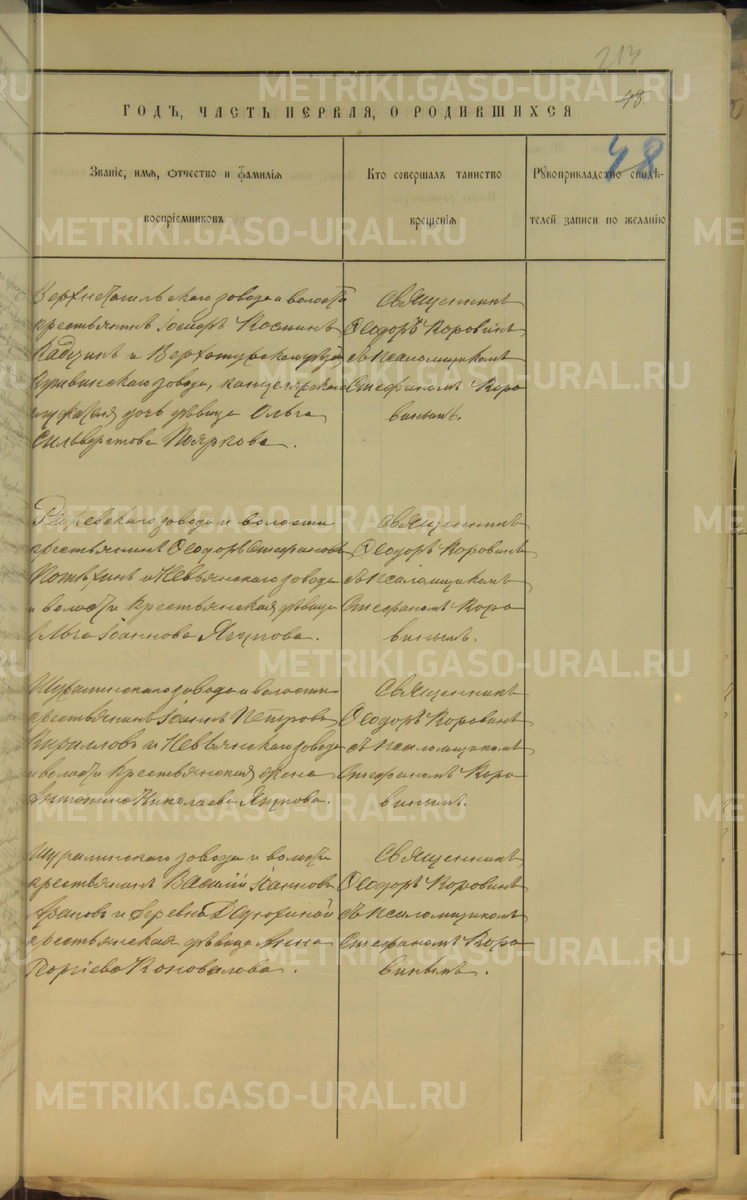 213
48.
48
ГОДЪ, ЧАСТЬ ПЕРВАЯ, О РОДИВШИХСЯ
Званіе, имя, отчество и фамилія
воспріемниковъ
Кто совершалъ таинство
крещенія
Рукоприкладство свидѣ-
телей записи по желанію
Верхнетагильскаго завода и волости
крестьянинъ
и Верхотурскаго уѣзда,
завода, канцелярскаго
служителя дочь дѣвица Ольга
Сильверстова Пояркова.
Священникъ
Ѳеодоръ Коровинъ
съ псаломщикомъ
Стефаномъ Коро
винымъ.
завода и волости
крестьянинъ Ѳеодоръ Стефановъ
и Невьянскаго завода
и волости крестьянская дѣвица
Ольга Іоаннова
Священникъ
Ѳеодоръ Коровинъ
съ псаломщикомъ
Стефаномъ Коро
винымъ.
Шуралинскаго завода и волости
крестьянинъ Іоаннъ Петровъ
Кирилловъ и Невьянскаго завода
и волости крестьянская жена
Антонина Николаева
Священникъ
Ѳеодоръ Коровинъ
съ псаломщикомъ
Стефаномъ Коро
винымъ.
Шуралинскаго завода и волости
крестьянинъ Василій Іоанновъ
и деревни
крестьянская дѣвица Анна
Георгіева Коновалова.
Священникъ
Ѳеодоръ Коровинъ
съ псаломщикомъ
Стефаномъ Коро
винымъ.
METRIKI.GASO-URAL.RU